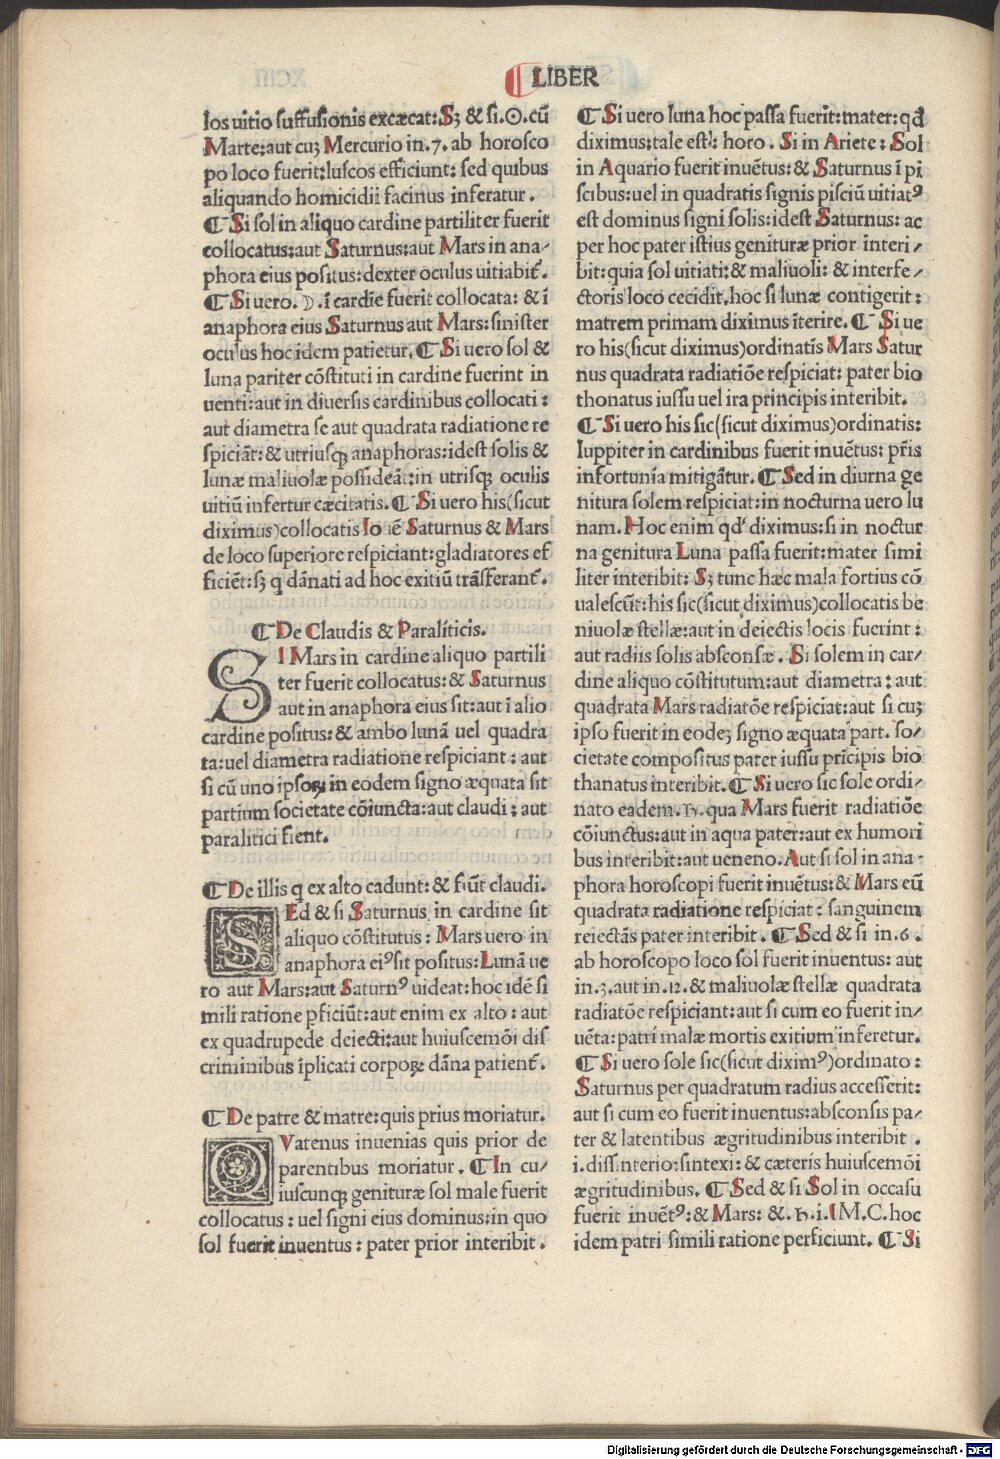 LIBER
los uitio suffusionis excæcat:Sꝫ & si.☉.cū
Marte:aut cuꝫ Mercurio in.7.ab horosco
po loco fuerit:luscos efficiunt: sed quibus
aliquando homicidii facinus inferatur.
¶ Si sol in aliquo cardine partiliter fuerit
collocatus:aut Saturnus:aut Mars in ana/
phora eius positus:dexter oculus uitiabit̄.
¶ Si uero.☽.ī cardīe fuerit collocata: & ī
anaphora eius Saturnus aut Mars:sinister
oculus hoc idem patietur. ¶ Si uero sol &
luna pariter cōstituti in cardine fuerint in
uenti:aut in diuersis cardinibus collocati:
aut diametra se aut quadrata radiatione re
spiciāt:& utriusqꝫ anaphoras:idest solis &
lunæ maliuolæ possideāt:in utrisqꝫ oculis
uitiū infertur cæcitatis. ¶ Si uero his(sicut
diximus)collocatis Saturnus & Mars
de loco superiore respiciant:gladiatores ef
ficiēt:sꝫ q dānati ad hoc exitiū trāsferant̄.
¶ De Claudis & Paraliticis.
SI Mars in cardine aliquo partili
ter fuerit collocatus:& Saturnus
aut in anaphora eius sit:aut ī alio
cardine positus:& ambo lunā uel quadra
ta:uel diametra radiatione respiciant: aut
si cū uno ipsoꝝ in eodem signo æquata sit
partium societate cōiuncta:aut claudi: aut
paralitici fient.
¶ De illis q ex alto cadunt:& fiūt claudi.
SEd & si Saturnus in cardine sit
aliquo cōstitutus: Mars uero in
anaphora eiꝰ sit positus:Lunā ue
ro aut Mars:aut Saturnꝰ uideat:hoc idē si
mili ratione ꝑficiūt:aut enim ex alto: aut
ex quadrupede deiecti:aut huiuscemōi dis
criminibus īplicati corpoꝝ dāna patient̄.
¶ De patre & matre:quis prius moriatur.
QVatenus inuenias quis prior de
parentibus moriatur. ¶ In cu/
iuscunqꝫ genituræ sol male fuerit
collocatus: uel signi eius dominus:in quo
sol fuerit inuentus: pater prior interibit.
¶ Si uero luna hoc passa fuerit:mater:qd̄
diximus:tale est: horo. Si in Ariete: Sol
in Aquario fuerit inuētus:& Saturnus ī pi
scibus:uel in quadratis signis pisciū uitiatꝰ
est dominus signi solis:idest Saturnus: ac
per hoc pater istius genituræ prior interi/
bit:quia sol uitiati:& maliuoli: & interfe/
ctoris loco cecidit.hoc si lunæ contigerit:
matrem primam diximus īterire. ¶ Si ue
ro his(sicut diximus)ordinatis Mars Satur
nus quadrata radiatiōe respiciat: pater bio
thonatus iussu uel ira principis interibit.
¶ Si uero his sic(sicut diximus)ordinatis:
Iuppiter in cardinibus fuerit inuētus: p̄ris
infortunia mitigātur. ¶ Sed in diurna ge
nitura solem respiciat:in nocturna uero lu
nam. Hoc enim qd̄ diximus:si in noctur
na genitura Luna passa fuerit:mater simi
liter interibit: Sꝫ tunc hæc mala fortius cō
ualescūt:his sic(sicut diximus)collocatis be
niuolæ stellæ:aut in deiectis locis fuerint:
aut radiis solis absconsæ. Si solem in car/
dine aliquo cōstitutum:aut diametra: aut
quadrata Mars radiatōe respiciat:aut si cuꝫ
ipso fuerit in eodeꝫ signo æquata part. so/
cietate compositus pater iussu prīcipis bio
thanatus interibit. ¶ Si uero sic sole ordi/
nato eadem.♄.qua Mars fuerit radiatiōe
cōiunctus:aut in aqua pater:aut ex humori
bus interibit:aut ueneno. Aut si sol in ana-
phora horoscopi fuerit inuētus:& Mars eū
quadrata radiatione respiciat: sanguinem
reiectās pater interibit. ¶ Sed & si in.6.
ab horoscopo loco sol fuerit inuentus: aut
in.3.aut in.12.& maliuolæ stellæ quadrata
radiatōe respiciant:aut si cum eo fuerit in/
uēta:patri malæ mortis exitium inferetur.
¶ Si uero sole sic(sicut diximꝰ)ordinato:
Saturnus per quadratum radius accesserit:
aut si cum eo fuerit inuentus:absconsis pa/
ter & latentibus ægritudinibus interibit.
i.dissinterio:sintexi:& cæteris huiuscemōi
ægritudinibus. ¶ Sed & si Sol in occasu
fuerit inuētꝰ:& Mars: &.♄.i.I M.C.hoc
idem patri simili ratione perficiunt. ¶ Si
Digitalisierung gefördert durch die Deutsche Forschungsgemeinschaft - DFG